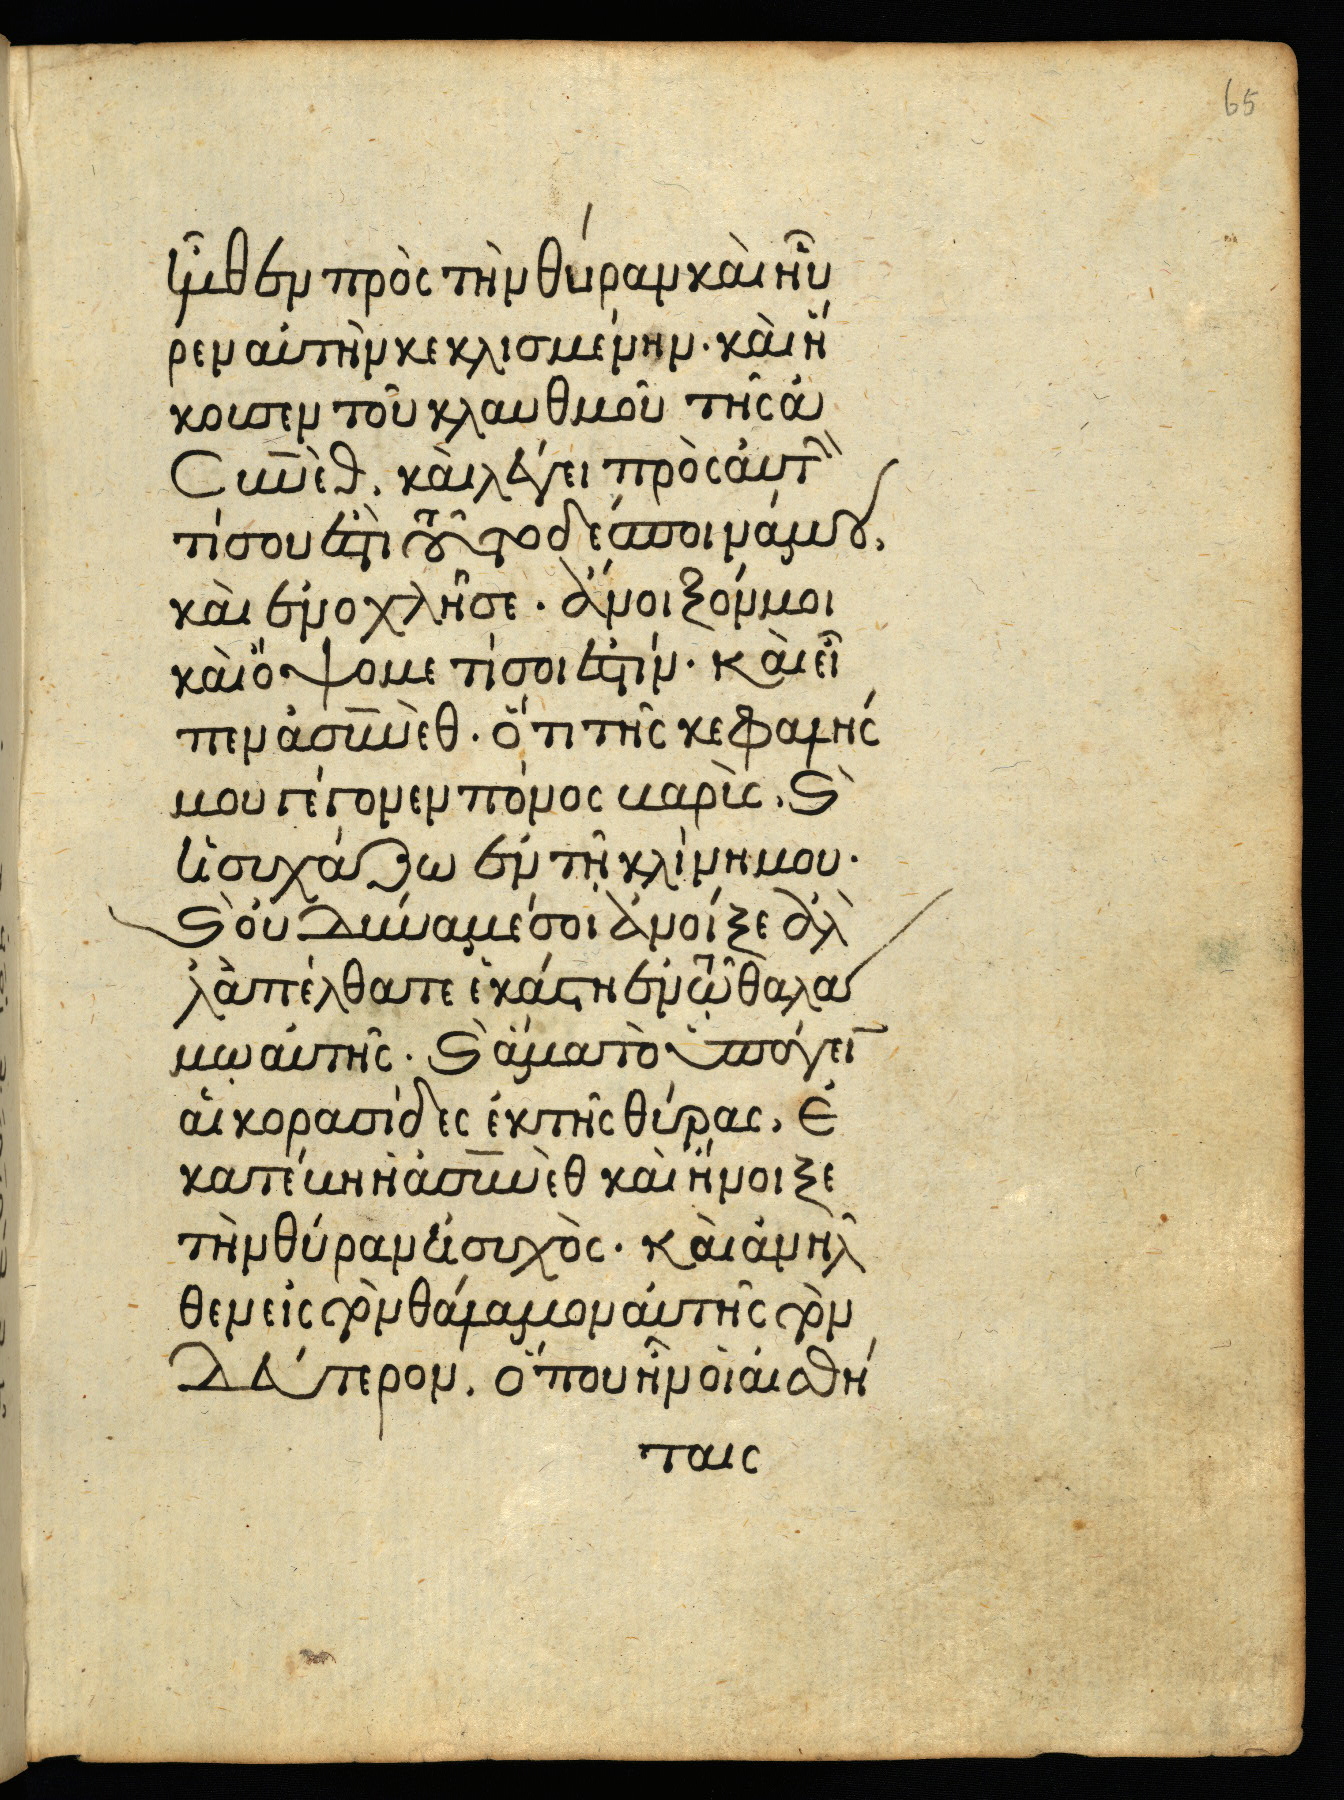 65
ἦλθεν πρὸς τὴν θύραν καὶ ηὗ
ρεν αὐτὴν κεκλισμένην· καὶ ἤ
κουσεν τοῦ κλαυθμοῦ τῆς ἀ
συνὲθ. καὶ λέγει πρὸς αὐτὴν
τί σου ἐστὶ τοῦτο δέσποινά μου.
καὶ ἐνοχλῆσε· ἄνοιξόν μοι
καὶ ὄψομε τί σοι ἐστίν· καὶ εἶ
πεν ἀσυνὲθ· ὅτι τῆς κεφαλής
μου γέγονεν πόνος βαρὶς. καὶ
ἡσυχάζω ἐν τῆ κλίνη μου·
καὶ οὐ δύναμέ σοι ἀνοίξε ἀλ
λἀπέλθατε ἑκάστη ἐν τῶ θαλα
μω αὐτῆς· καὶ ἅμα τὸ ὑπάγειν
αἱ κορασίδες ἐκ τῆς θύρας. ἐ
κατέβη ἡ ἀσυνὲθ καὶ ἤνοιξε
τὴν θύραν ἡσυχὸς· καὶ ἀνηλ
θεν εἰς τὸν θάλαμον αὐτῆς τὸν
δεύτερον. ὅπου ἦν οἱ αἰσθή
ταις